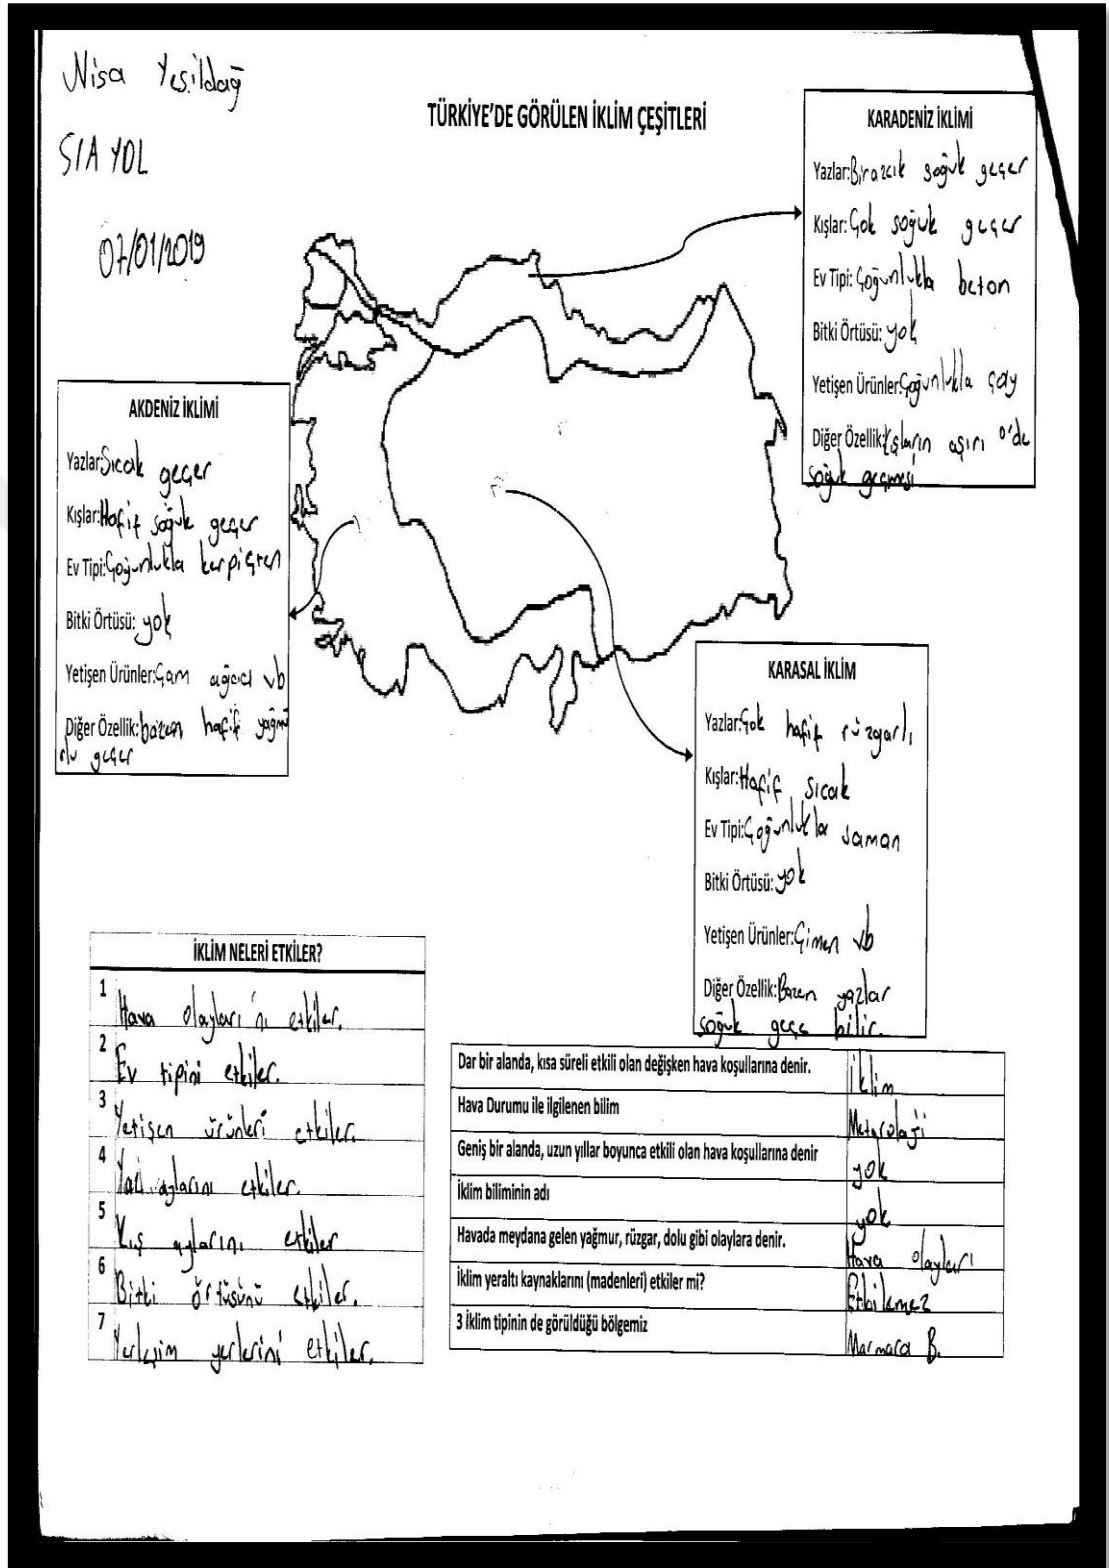 Nisa Yeşildağ
5/A YDL
07/01/2019
TÜRKİYE'DE GÖRÜLEN İKLİM ÇEŞİTLERİ
KARADENİZ İKLİMİ
Yazlar:Birazcık soğuk geçer
Kışlar:Çok soğuk geçer
Ev Tipi:Çoğunlukla beton
Bitki Örtüsü:yok
Yetişen Ürünler:Çoğunlukla çay
Diğer Özellik:Kışların aşırı 0'da
soğuk geçmesi
AKDENİZ İKLİMİ
Yazlar:Sıcak geçer
Kışlar:Hafif soğuk geçer
Ev Tipi:Çoğunlukla kerpiçten
Bitki Örtüsü:yok
Yetişen Ürünler:Çam ağacı vb
Diğer Özellik:bazen hafif yağmu
rlu geçer
KARASAL İKLİM
Yazlar:Çok hafif rüzgarlı
Kışlar:Hafif sıcak
Ev Tipi:Çoğunlukla saman
Bitki Örtüsü:yok
Yetişen Ürünler:Çimen vb
Diğer Özellik:Bazen yazlar
soğuk geçe bilir.
İKLİM NELERİ ETKİLER?
1 Hava olayları'nı etkiler.
2 Ev tipini etkiler.
3 Yetişen ürünleri etkiler.
4 aylarını etkiler.
5 Kış aylarını etkiler
6 Bitki örtüsünü etkiler.
7 Yerleşim yerlerini etkiler.
Dar bir alanda, kısa süreli etkili olan değişken hava koşullarına denir. İklim
Hava Durumu ile ilgilenen bilim Metaroloji
Geniş bir alanda, uzun yıllar boyunca etkili olan hava koşullarına denir yok
İklim biliminin adı yok
Havada meydana gelen yağmur, rüzgar, dolu gibi olaylara denir. Hava olayları
İklim yeraltı kaynaklarını (madenleri) etkiler mi? Etkilemez
3 İklim tipinin de görüldüğü bölgemiz Marmara B.